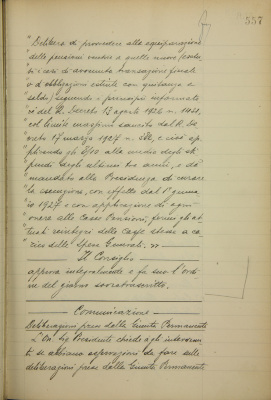 557
"Delibera di provvedere alla equiparazione
"delle pensioni vecchie a quelle nuove (esclu
"si i casi di avvenuta transazione finale
"o di obbligazione estinta con quietanza a
"saldo) seguendo i principii informato
"ri del R. Decreto 13 agosto 1926 n. 1431,
"col limite massimo sancito dal R. De
"creto 17 marzo 1927 n. 
"plicando gli 8/10 alla media degli sti
"pendi degli ultimi tre anni, e dà
"mandato alla Presidenza di curare
"la esecuzione, con effetto dal 1° genna
"io 1927 e con applicazione di ogni
"onere alle Casse Pensioni, fermi gli at
"tuali reintegri delle Casse stesse a ca
"rico delle Spese Generali. »
Il Consiglio
approva integralmente e fa suo l'ordi
ne del giorno soprascritto.
Comunicazioni
Deliberazioni prese dalla Giunta Permanente
L'On. Sig. Presidente chiede agli intervenu
ti se abbiano osservazioni da fare sulle
deliberazioni prese dalla Giunta Permanente